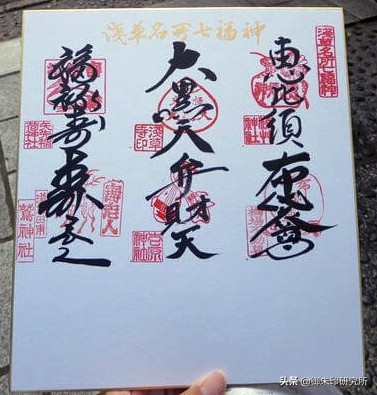 浅草名所七福神
浅草名所七福神
恵比須
布袋尊
大黒天
浅草寺印
弁財天
吉原神社
福禄寿
寿老人
壽老人
鷲神社
头条 @御朱印研究所